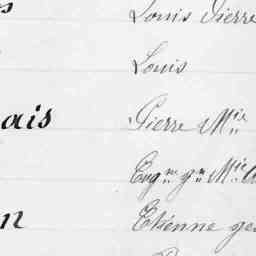 s Louis Pierre
Louis
ais Pierre Mie
Eugne gn Mie A
n Etienne ge